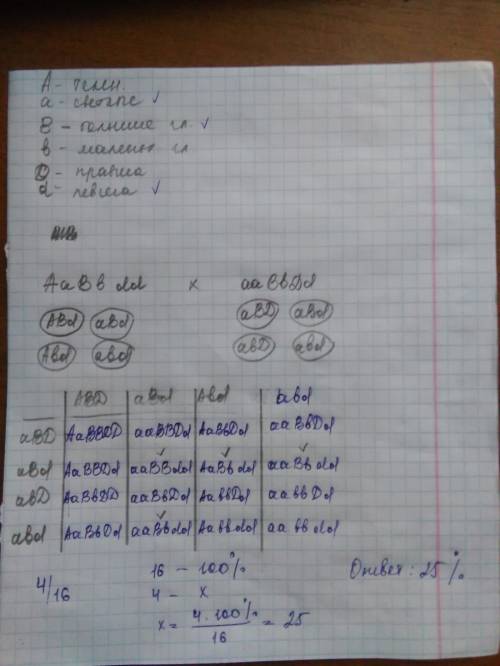 A - темн.
a - светлые ✓
B - большие гл. ✓
b - маленьк гл
D - правша
d - левша ✓
AaBb dd x aaBbDd
ABd aBd aBD aBd
Abd abd abD abd
ABD aBd Abd abd
aBD AaBBDD aaBBDd AaBbDd aaBbDd
aBd AaBBDd aaBBdd AaBbdd aaBbdd
abD AaBbDD aaBbDd AabbDd aabbDd
abd AaBbDd aaBbdd Aabbdd aabbdd
4/16 16 - 100% Ответ: 25 %
4 - x
x = 4 · 100% / 16 = 25